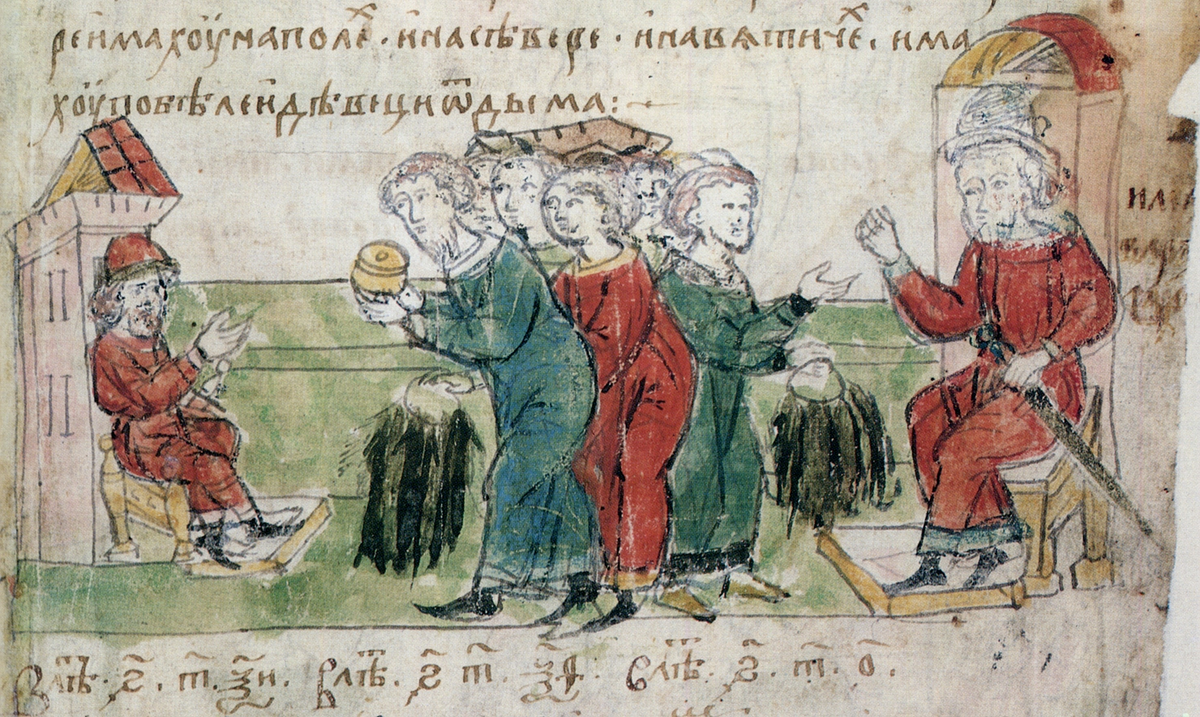 реимахоунаполеⷯ · инасѣвере · инавѧтичеⷯ · има
хоупобѣлеидѣвециѿдыма :~
Влⷮѣ · ѕ҃ · т҃ · ѯ҃и · Влⷮѣ · ѕ҃ т҃ · ѯ҃ѳ · Влⷮѣ · ѕ҃ · т҃ · о҃ ·